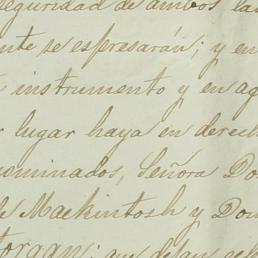 seguridad de ambos la
nte se espresarán; y en
instrumento y en aq
lugar haya en derech
nominados, Señora Do
de Mackintosh y Don
organ; que dejan cel